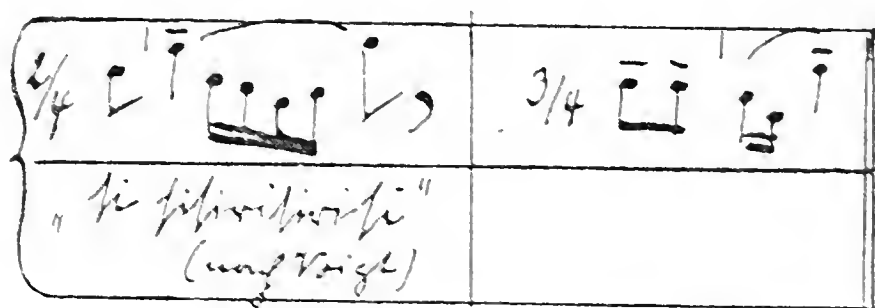 2/4 3/4
„si sisirisirisi"
(nach Voigt)